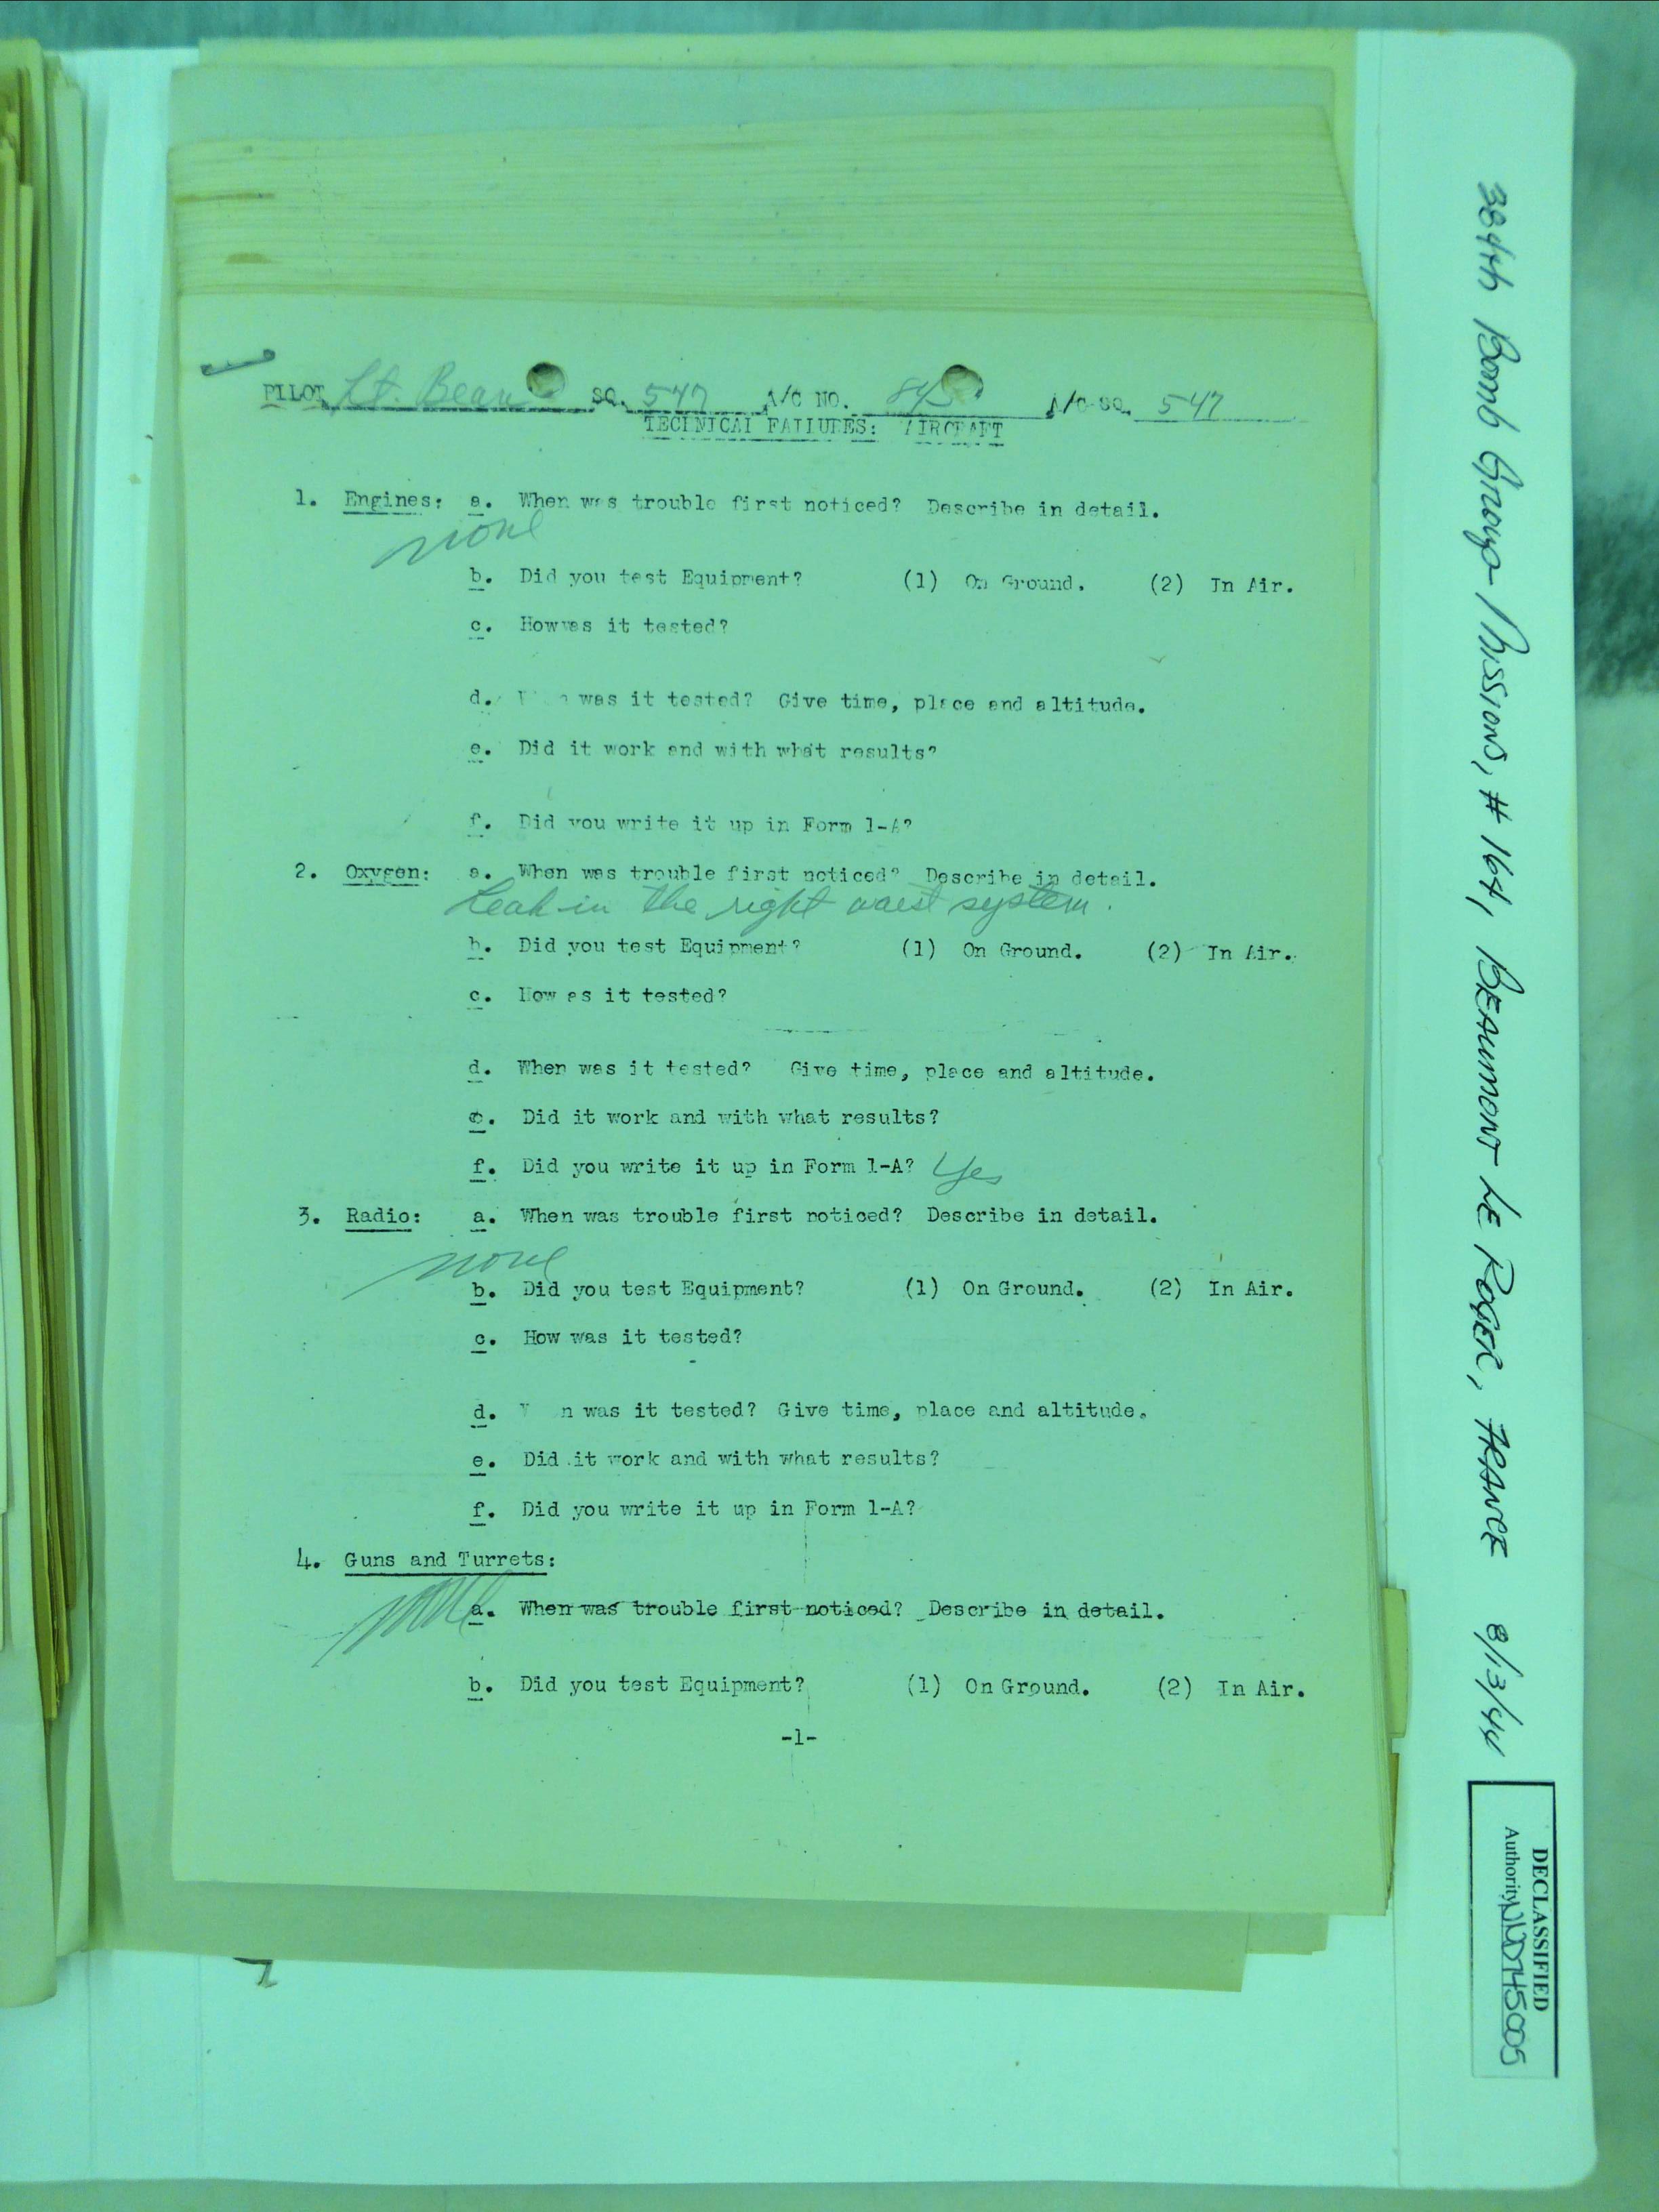 PILOT Lt. Bean SQ. 547 A/C NO. 845 A/C SQ. 547
TECHNICAL FAILURES: AIRCRAFT
1. Engines: a. When was trouble first noticed? Describe in detail.
none
b. Did you test Equipment? (1) On Ground. (2) In Air.
c. How was it tested?
d. was it tested? Give time, place and altitude.
e. Did it work and with what results?
f. Did you write it up in Form 1-A?
2. Oxygen: a. When was trouble first noticed? Describe in detail.
Leak in the right waist system.
b. Did you test Equipment? (1) On Ground. (2) In Air.
c. How as it tested?
d. When was it tested? Give time, place and altitude.
e. Did it work and with what results?
f. Did you write it up in Form 1-A? Yes
3. Radio: a. When was trouble first noticed? Describe in detail.
none
b. Did you test Equipment? (1) On Ground. (2) In Air.
c. How was it tested?
d. was it tested? Give time, place and altitude.
e. Did it work and with what results?
f. Did you write it up in Form 1-A?
4. Guns and Turrets:
none
a. When was trouble first noticed? Describe in detail.
b. Did you test Equipment? (1) On Ground. (2) In Air.
-1-
384th Bomb Group Missions, #164, BEAUMONT LE ROGER, FRANCE 8/13/44
DECLASSIFIED
Authority NND745005